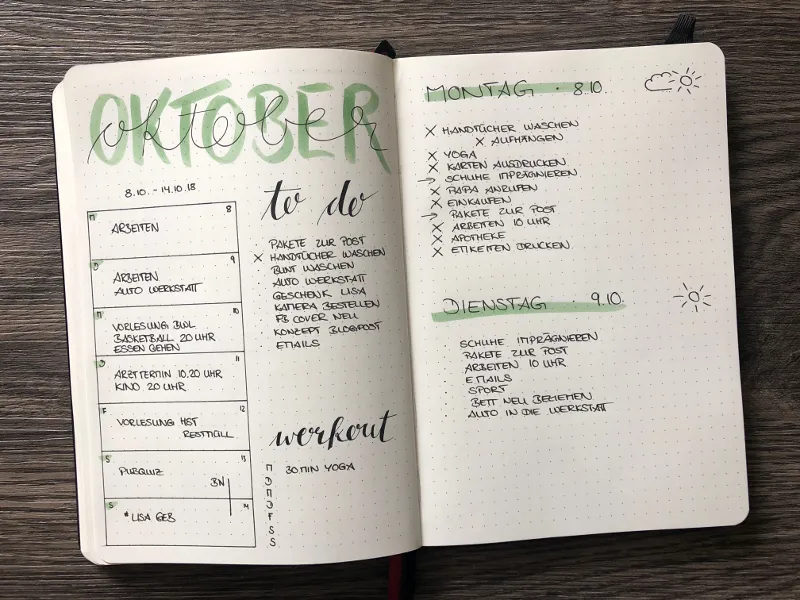 OKTOBER
oktober
8.10. - 14.10.18
M 8
ARBEITEN
D 9
ARBEITEN
AUTO WERKSTATT
M 10
VORLESUNG BWL
BASKETBALL 20 UHR
ESSEN GEHEN
D 11
ARZTTERMIN 10.20 UHR
KINO 20 UHR
F 12
VORLESUNG HST
RESTMÜLL
S 13
PUBQUIZ
BN
S 14
* LISA GEB
to do
· PAKETE ZUR POST
X HANDTÜCHER WASCHEN
· BUNT WASCHEN
· AUTO WERKSTATT
· GESCHENK LISA
· KAMERA BESTELLEN
· FB COVER NEU
· KONZEPT BLOGPOST
· EMAILS
workout
M 30 MIN YOGA
D
M
D
F
S
S
MONTAG · 8.10.
X HANDTÜCHER WASCHEN
X AUFHÄNGEN
X YOGA
X KARTEN AUSDRUCKEN
→ SCHUHE IMPRÄGNIEREN
X PAPA ANRUFEN
X EINKAUFEN
→ PAKETE ZUR POST
X ARBEITEN 10 UHR
X APOTHEKE
X ETIKETTEN DRUCKEN
DIENSTAG · 9.10.
· SCHUHE IMPRÄGNIEREN
· PAKETE ZUR POST
· ARBEITEN 10 UHR
· EMAILS
· SPORT
· BETT NEU BEZIEHEN
· AUTO IN DIE WERKSTATT